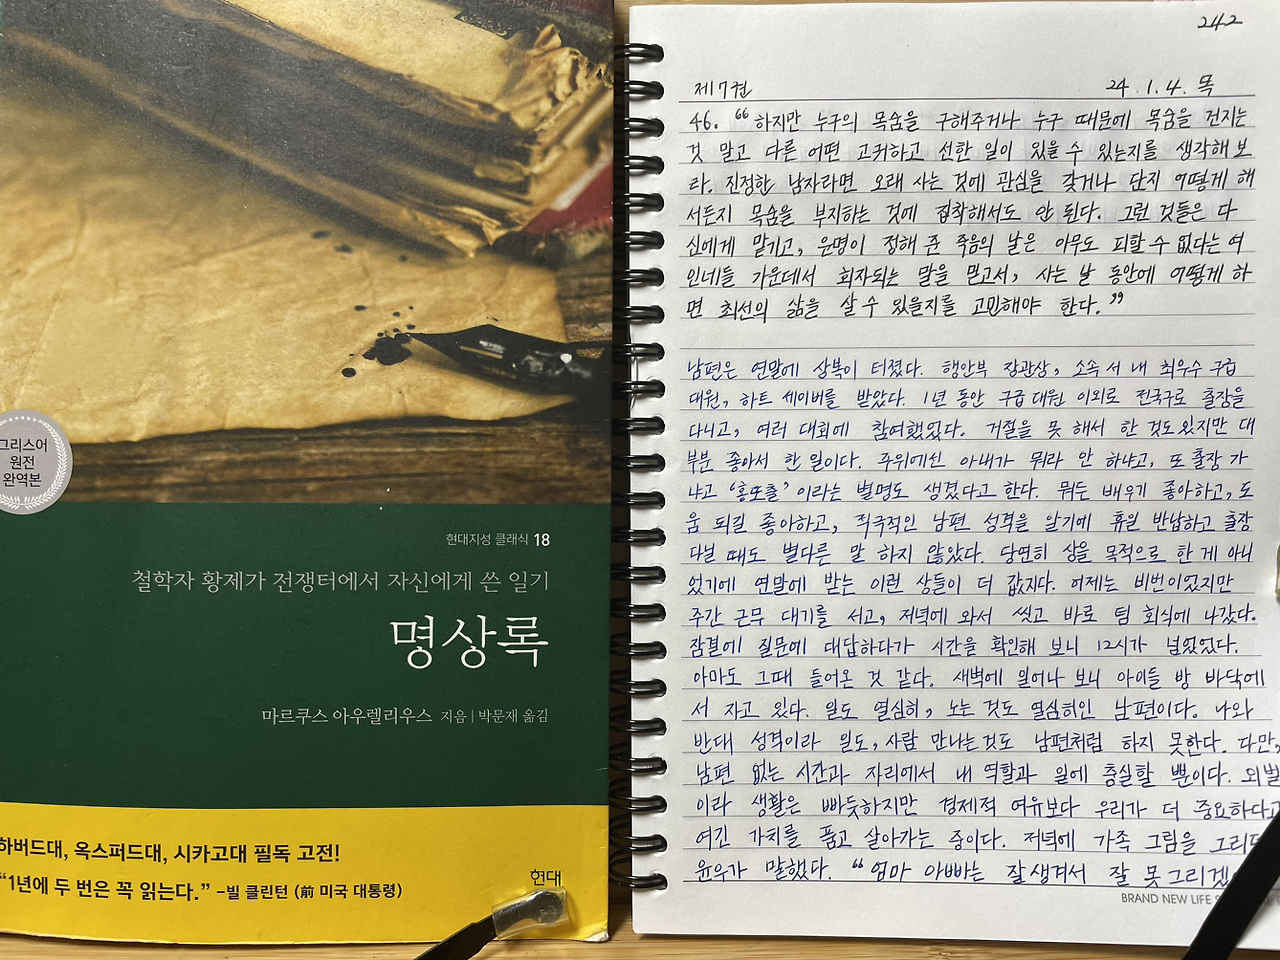 그리스어
원전
완역본
현대지성 클래식 18
철학자 황제가 전쟁터에서 자신에게 쓴 일기
명상록
마르쿠스 아우렐리우스 지음 | 박문재 옮김
하버드대, 옥스퍼드대, 시카고대 필독 고전!
“1년에 두 번은 꼭 읽는다.” –빌 클린턴 (前 미국 대통령)
현대
242
제17권 24.1.4. 목
46. “하지만 누구의 목숨을 구해주거나 누구 때문에 목숨을 건지는
것 말고 다른 어떤 고귀하고 선한 일이 있을 수 있는지를 생각해 보
라. 진정한 남자라면 오래 사는 것에 관심을 갖거나 단지 어떻게 해
서든지 목숨을 부지하는 것에 집착해서도 안 된다. 그런 것들은 다
신에게 맡기고, 운명이 정해 준 죽음의 날은 아무도 피할 수 없다는 여
인네들 가운데서 회자되는 말을 믿고서, 사는 날 동안에 어떻게 하
면 최선의 삶을 살 수 있을지를 고민해야 한다.”
남편은 연말에 상복이 터졌다. 행안부 장관상, 소속 서 내 최우수 구급
대원, 하트 세이버를 받았다. 1년 동안 구급대원 이외로 전국구로 출장을
다니고, 여러 대회에 참여했었다. 거절을 못 해서 한 것도 있지만 대
부분 좋아서 한 일이다. 주위에선 아내가 뭐라 안 하냐고, 또 출장 가
냐고 ‘홍또출’이라는 별명도 생겼다고 한다. 뭐든 배우기 좋아하고, 도
움 되길 좋아하고, 적극적인 남편 성격을 알기에 휴일 반납하고 출장
다닐 때도 별다른 말 하지 않았다. 당연히 상을 목적으로 한 게 아니
었기에 연말에 받는 이런 상들이 더 값지다. 어제는 비번이었지만
주간 근무 대기를 서고, 저녁에 와서 씻고 바로 팀 회식에 나갔다.
잠결에 질문에 대답하다가 시간을 확인해 보니 12시가 넘었었다.
아마도 그때 들어온 것 같다. 새벽에 일어나 보니 아이들 방 바닥에
서 자고 있다. 일도 열심히, 노는 것도 열심히인 남편이다. 나와
반대 성격이라 일도, 사람 만나는 것도 남편처럼 하지 못한다. 다만,
남편 없는 시간과 자리에서 내 역할과 일에 충실할 뿐이다. 외벌
이라 생활은 빠듯하지만 경제적 여유보다 우리가 더 중요하다고
여긴 가치를 품고 살아가는 중이다. 저녁에 가족 그림을 그리
윤우가 말했다. “엄마 아빠는 잘생겨서 잘 못 그리겠
BRAND NEW LIFE